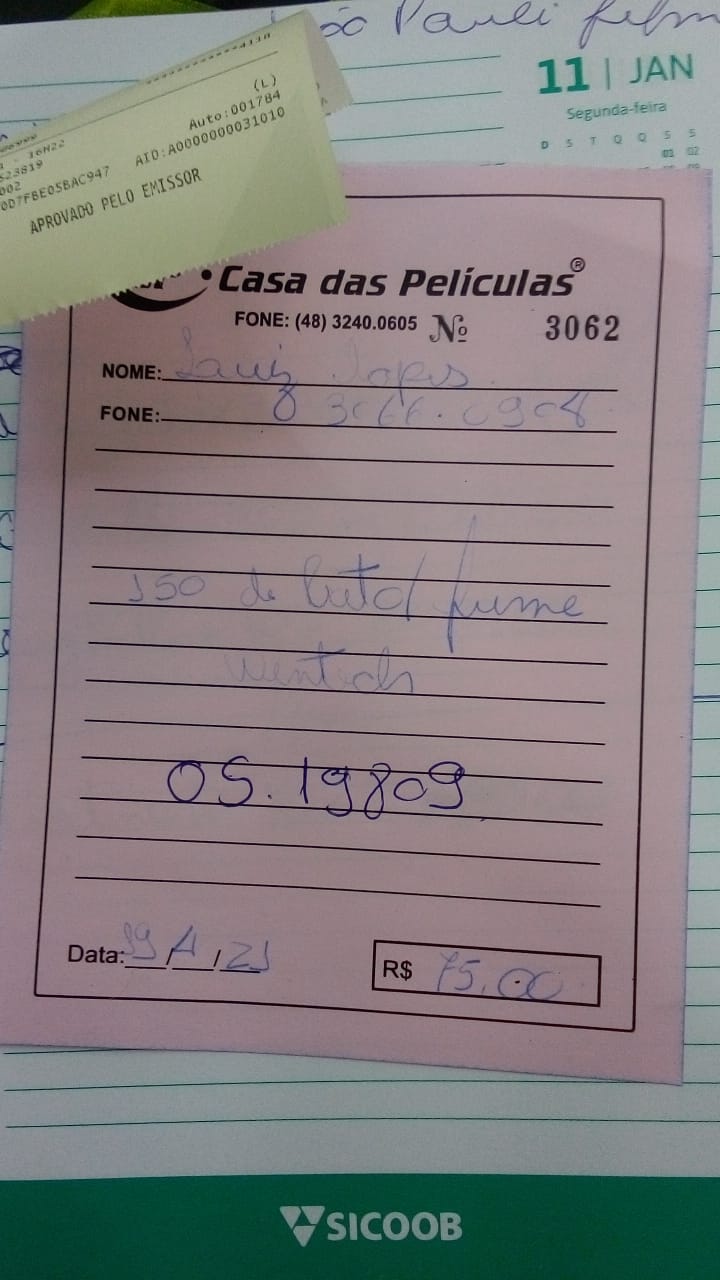 João Pauli
11 | JAN
Segunda-feira
D S T Q Q S S
01 02
4110
(L)
Auto:001784
16H22
523819
AID:A0000000031010
002
0D7FBE05BAC947
APROVADO PELO EMISSOR
Casa das Películas®
FONE: (48) 3240.0605 Nº 3062
NOME: Luiz Lopes
FONE: 8 3066.0908
150 de luto/ fume
05.19809
Data: 19/1/21 R$ 75,00
SICOOB